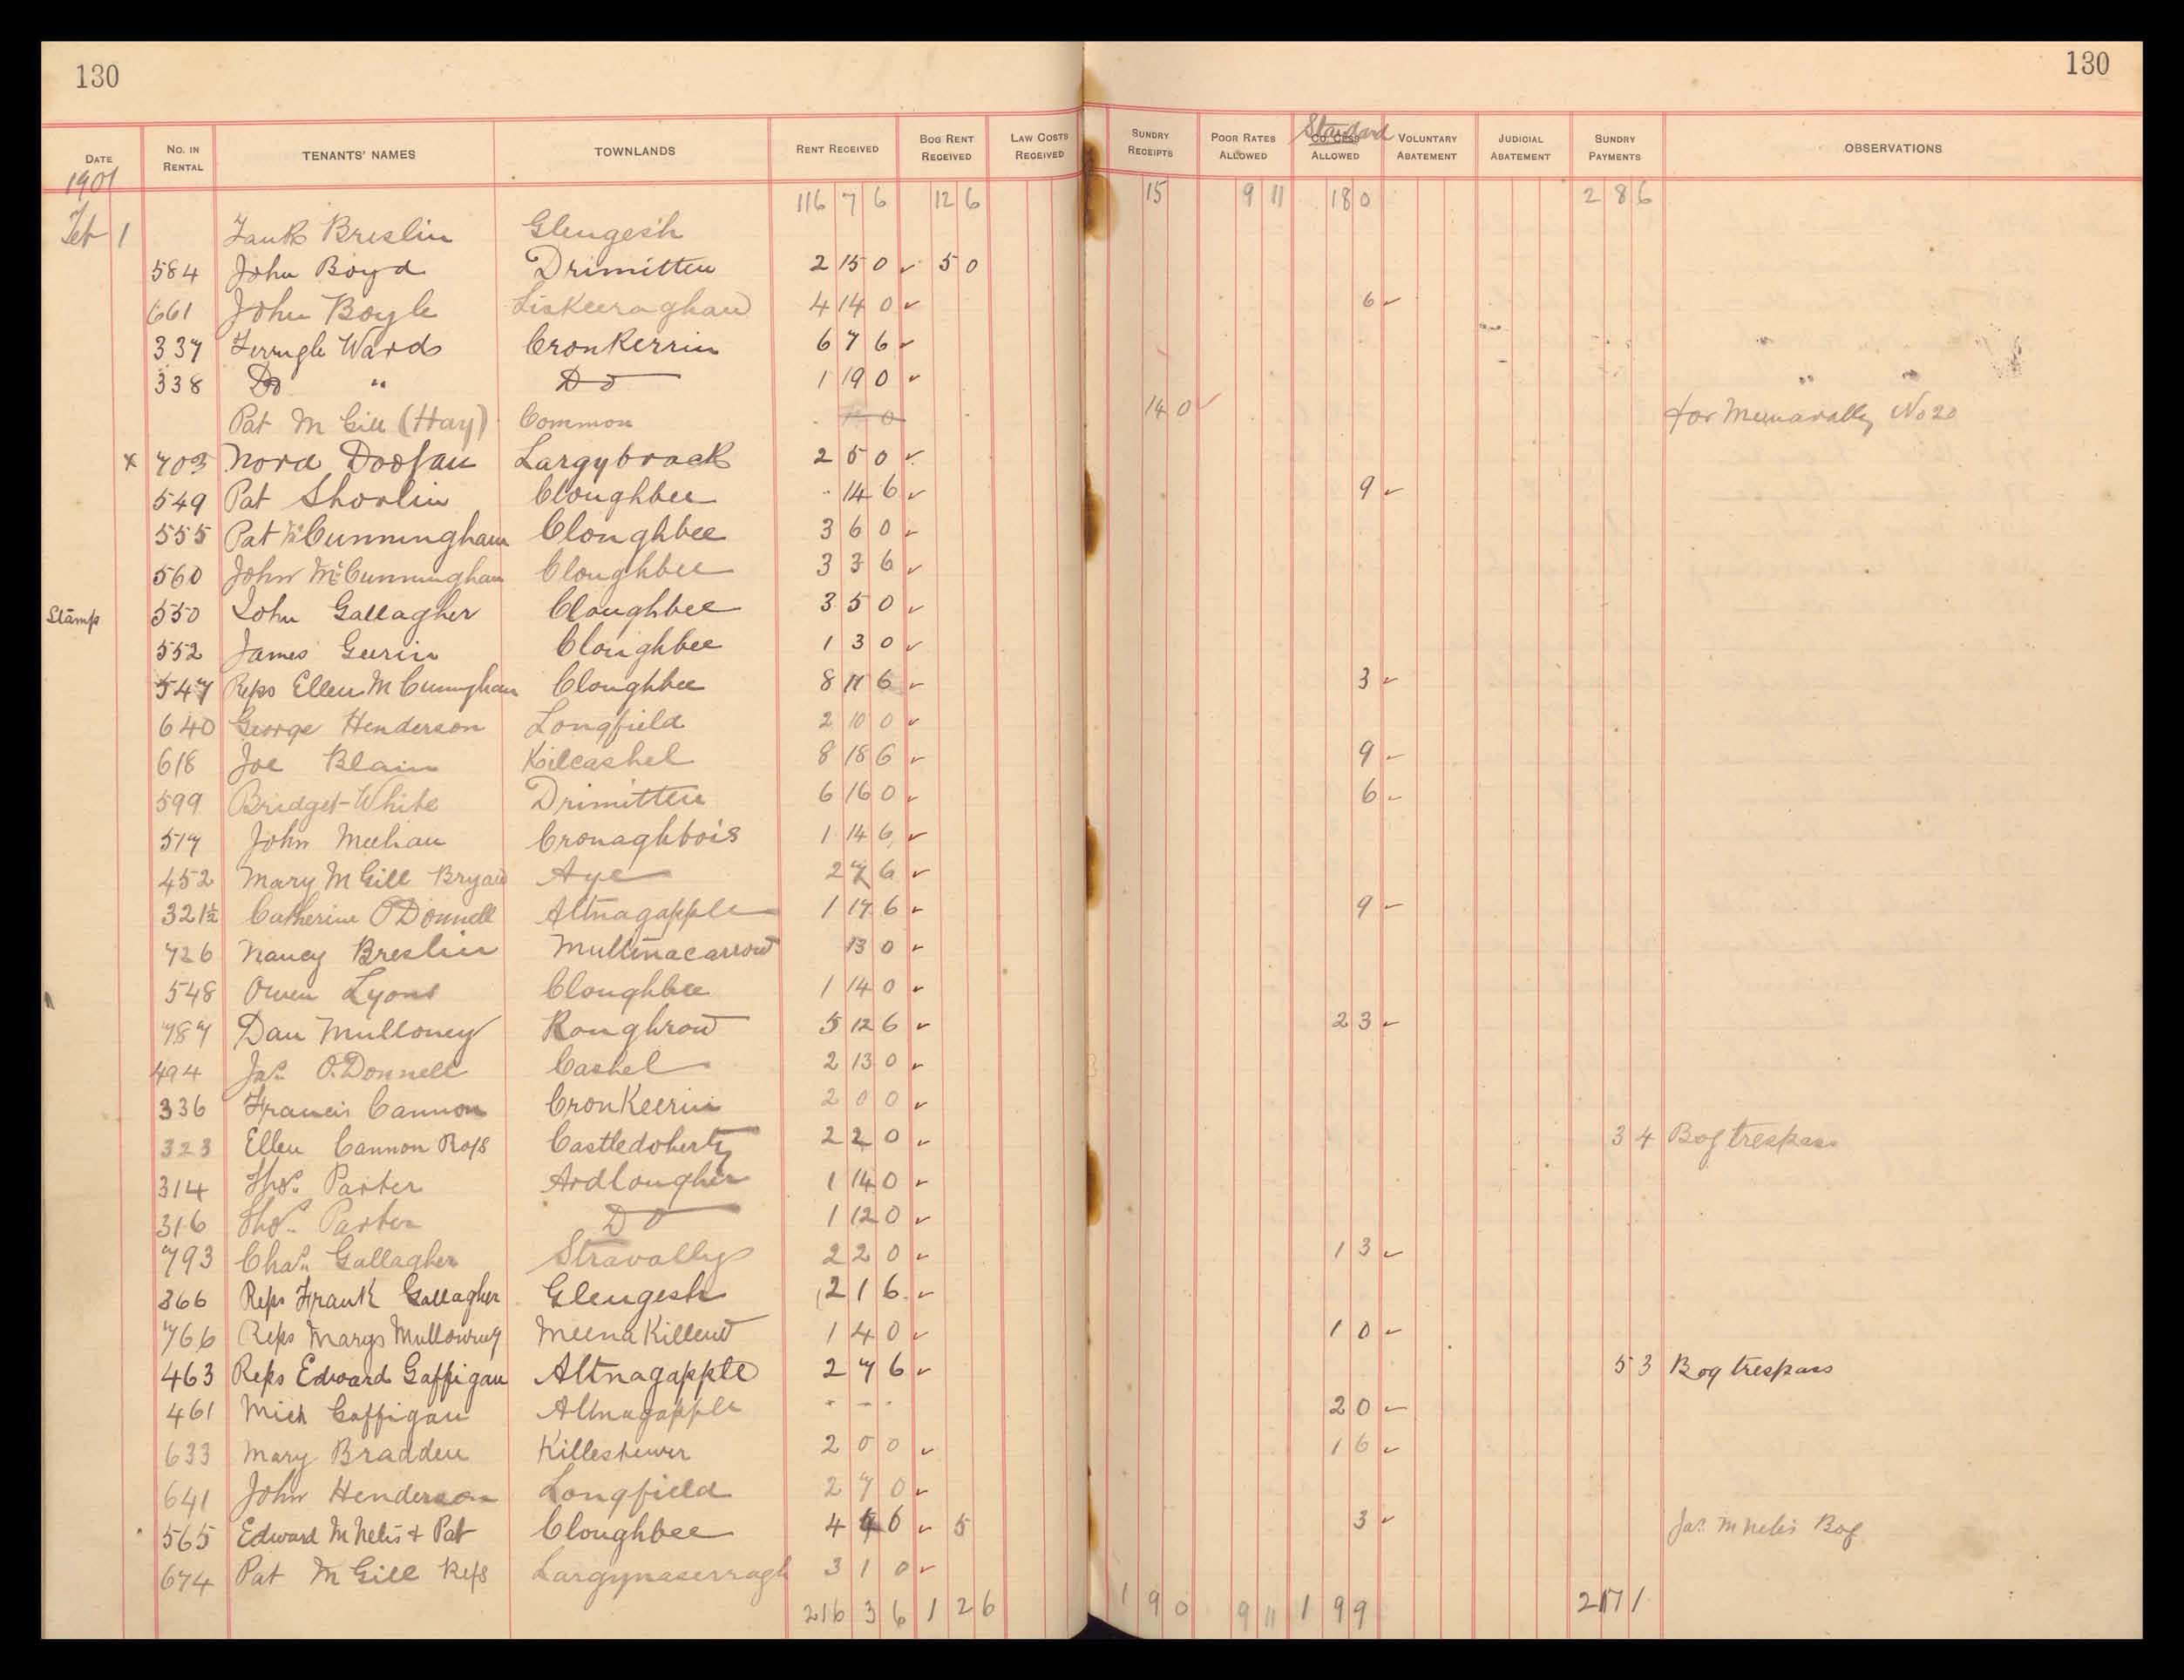 130 130
DATE NO. IN RENTAL TENANTS' NAMES TOWNLANDS RENT RECEIVED BOG RENT RECEIVED LAW COSTS RECEIVED SUNDRY RECEIPTS POOR RATES ALLOWED Standard CO. CESS ALLOWED VOLUNTARY ABATEMENT JUDICIAL ABATEMENT SUNDRY PAYMENTS OBSERVATIONS
1901
116 7 6 12 6 15 9 11 18 0 2 8 6
Feb 1 Breslin Glengesh
584 John Boyd Drimitten 2 15 0 ✓ 5 0
661 John Boyle Liskeeraghan 4 14 0 ✓ 6 ✓
337 Ferrugle Wards CronKerrin 6 7 6 ✓
338 Do " Do 1 19 0 ✓
Pat M Gill (Hay) Common 14 0 ✓ for No 20
x 703 Nora Doofan Largybrack 2 5 0 ✓
549 Pat Shovlin Cloughbee 14 6 ✓ 9 ✓
555 Pat Mc Cunningham Cloughbee 3 6 0 ✓
560 John McCunningham Cloughbee 3 3 6 ✓
Stamp 550 John Gallagher Cloughbee 3 5 0 ✓
552 James Geerin Cloughbee 1 3 0 ✓
547 Reps Ellen M Cuningham Cloughbee 8 11 6 ✓ 3 ✓
640 George Henderson Longfield 2 10 0 ✓
618 Joe Blain Kilcashel 8 18 6 ✓ 9 ✓
599 Bridget White Drimitten 6 16 0 ✓ 6 ✓
517 John Meehan Cronaghbois 1 14 6 ✓
452 Mary M Gill Bryan Aye 2 7 6 ✓
321½ Catherine O'Donnell Altnagapple 1 17 6 ✓ 9 ✓
726 Nancy Breslin Mullinacarrow 13 0 ✓
548 Owen Lyons Cloughbee 1 14 0 ✓
787 Dan Mulloney Roughrow 5 12 6 ✓ 2 3 ✓
494 Jas. O'Donnell Cashel 2 13 0 ✓
336 Francis Cannon CronKeerin 2 0 0 ✓
323 Ellen Cannon Rops Castledoherty 2 2 0 ✓ 3 4 Bog trespass
314 Thos. Parter Ardlougher 1 14 0 ✓
316 Thos. Parter Do 1 12 0 ✓
793 Chas. Gallagher Stravally 2 2 0 ✓ 1 3 ✓
366 Reps Frank Gallagher Glengesh 2 1 6 ✓
766 Reps Marys Mullowney Meena Killew 1 4 0 ✓ 1 0 ✓
463 Reps Edward Gaffigan Altnagapple 2 7 6 ✓ 5 3 Bog trespass
461 Mich Gaffigan Altnagapple - - - 2 0 ✓
633 Mary Bradden 2 0 0 ✓ 1 6 ✓
641 John Henderson Longfield 2 7 0 ✓
565 Edward M Nelis + Pat Cloughbee 4 6 ✓ 5 3 ✓ Jas. M Nelis Bog
674 Pat M Gill Reps Largynaserragh 3 1 0 ✓
216 3 6 1 2 6 1 9 0 9 11 1 9 9 2 17 1